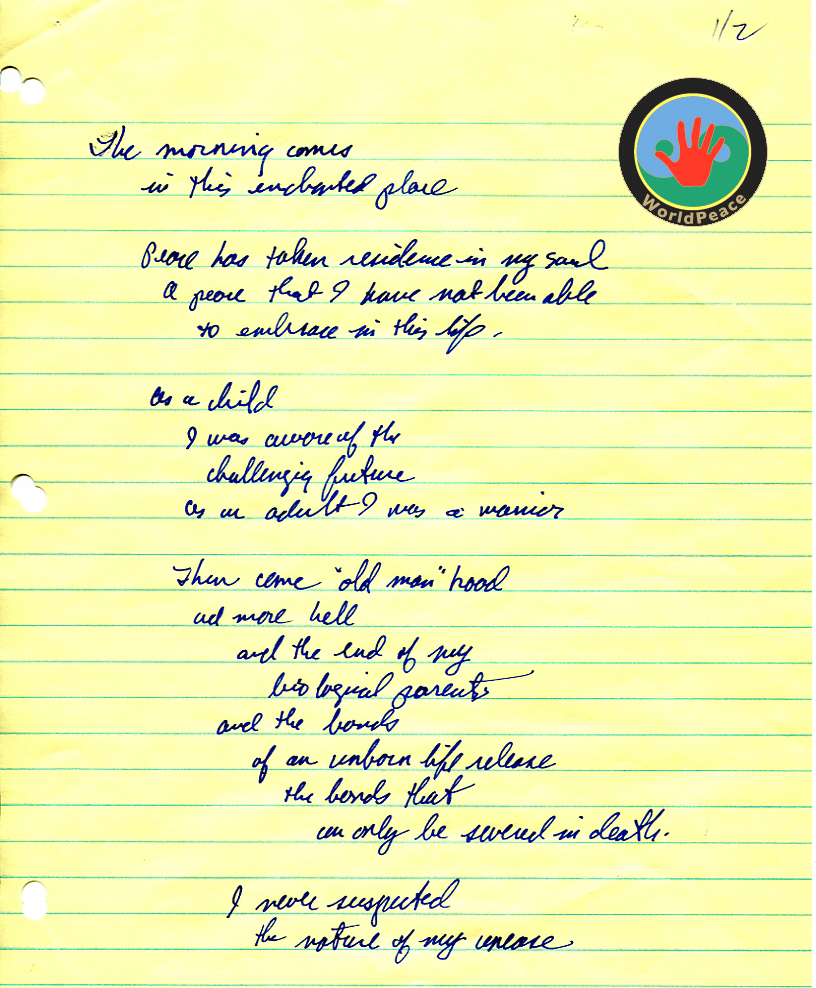 1/2
WorldPeace
The morning comes
in this enchanted place
Peace has taken residence in my soul
A peace that I have not been able
to embrace in this life.
as a child
I was aware of the
challenging future
as an adult I was a warrior
Then came "old man" hood
and more hell
and the end of my
biological parents
and the bonds
of an unborn life release
the bonds that
can only be severed in death.
I never suspected
the nature of my unease